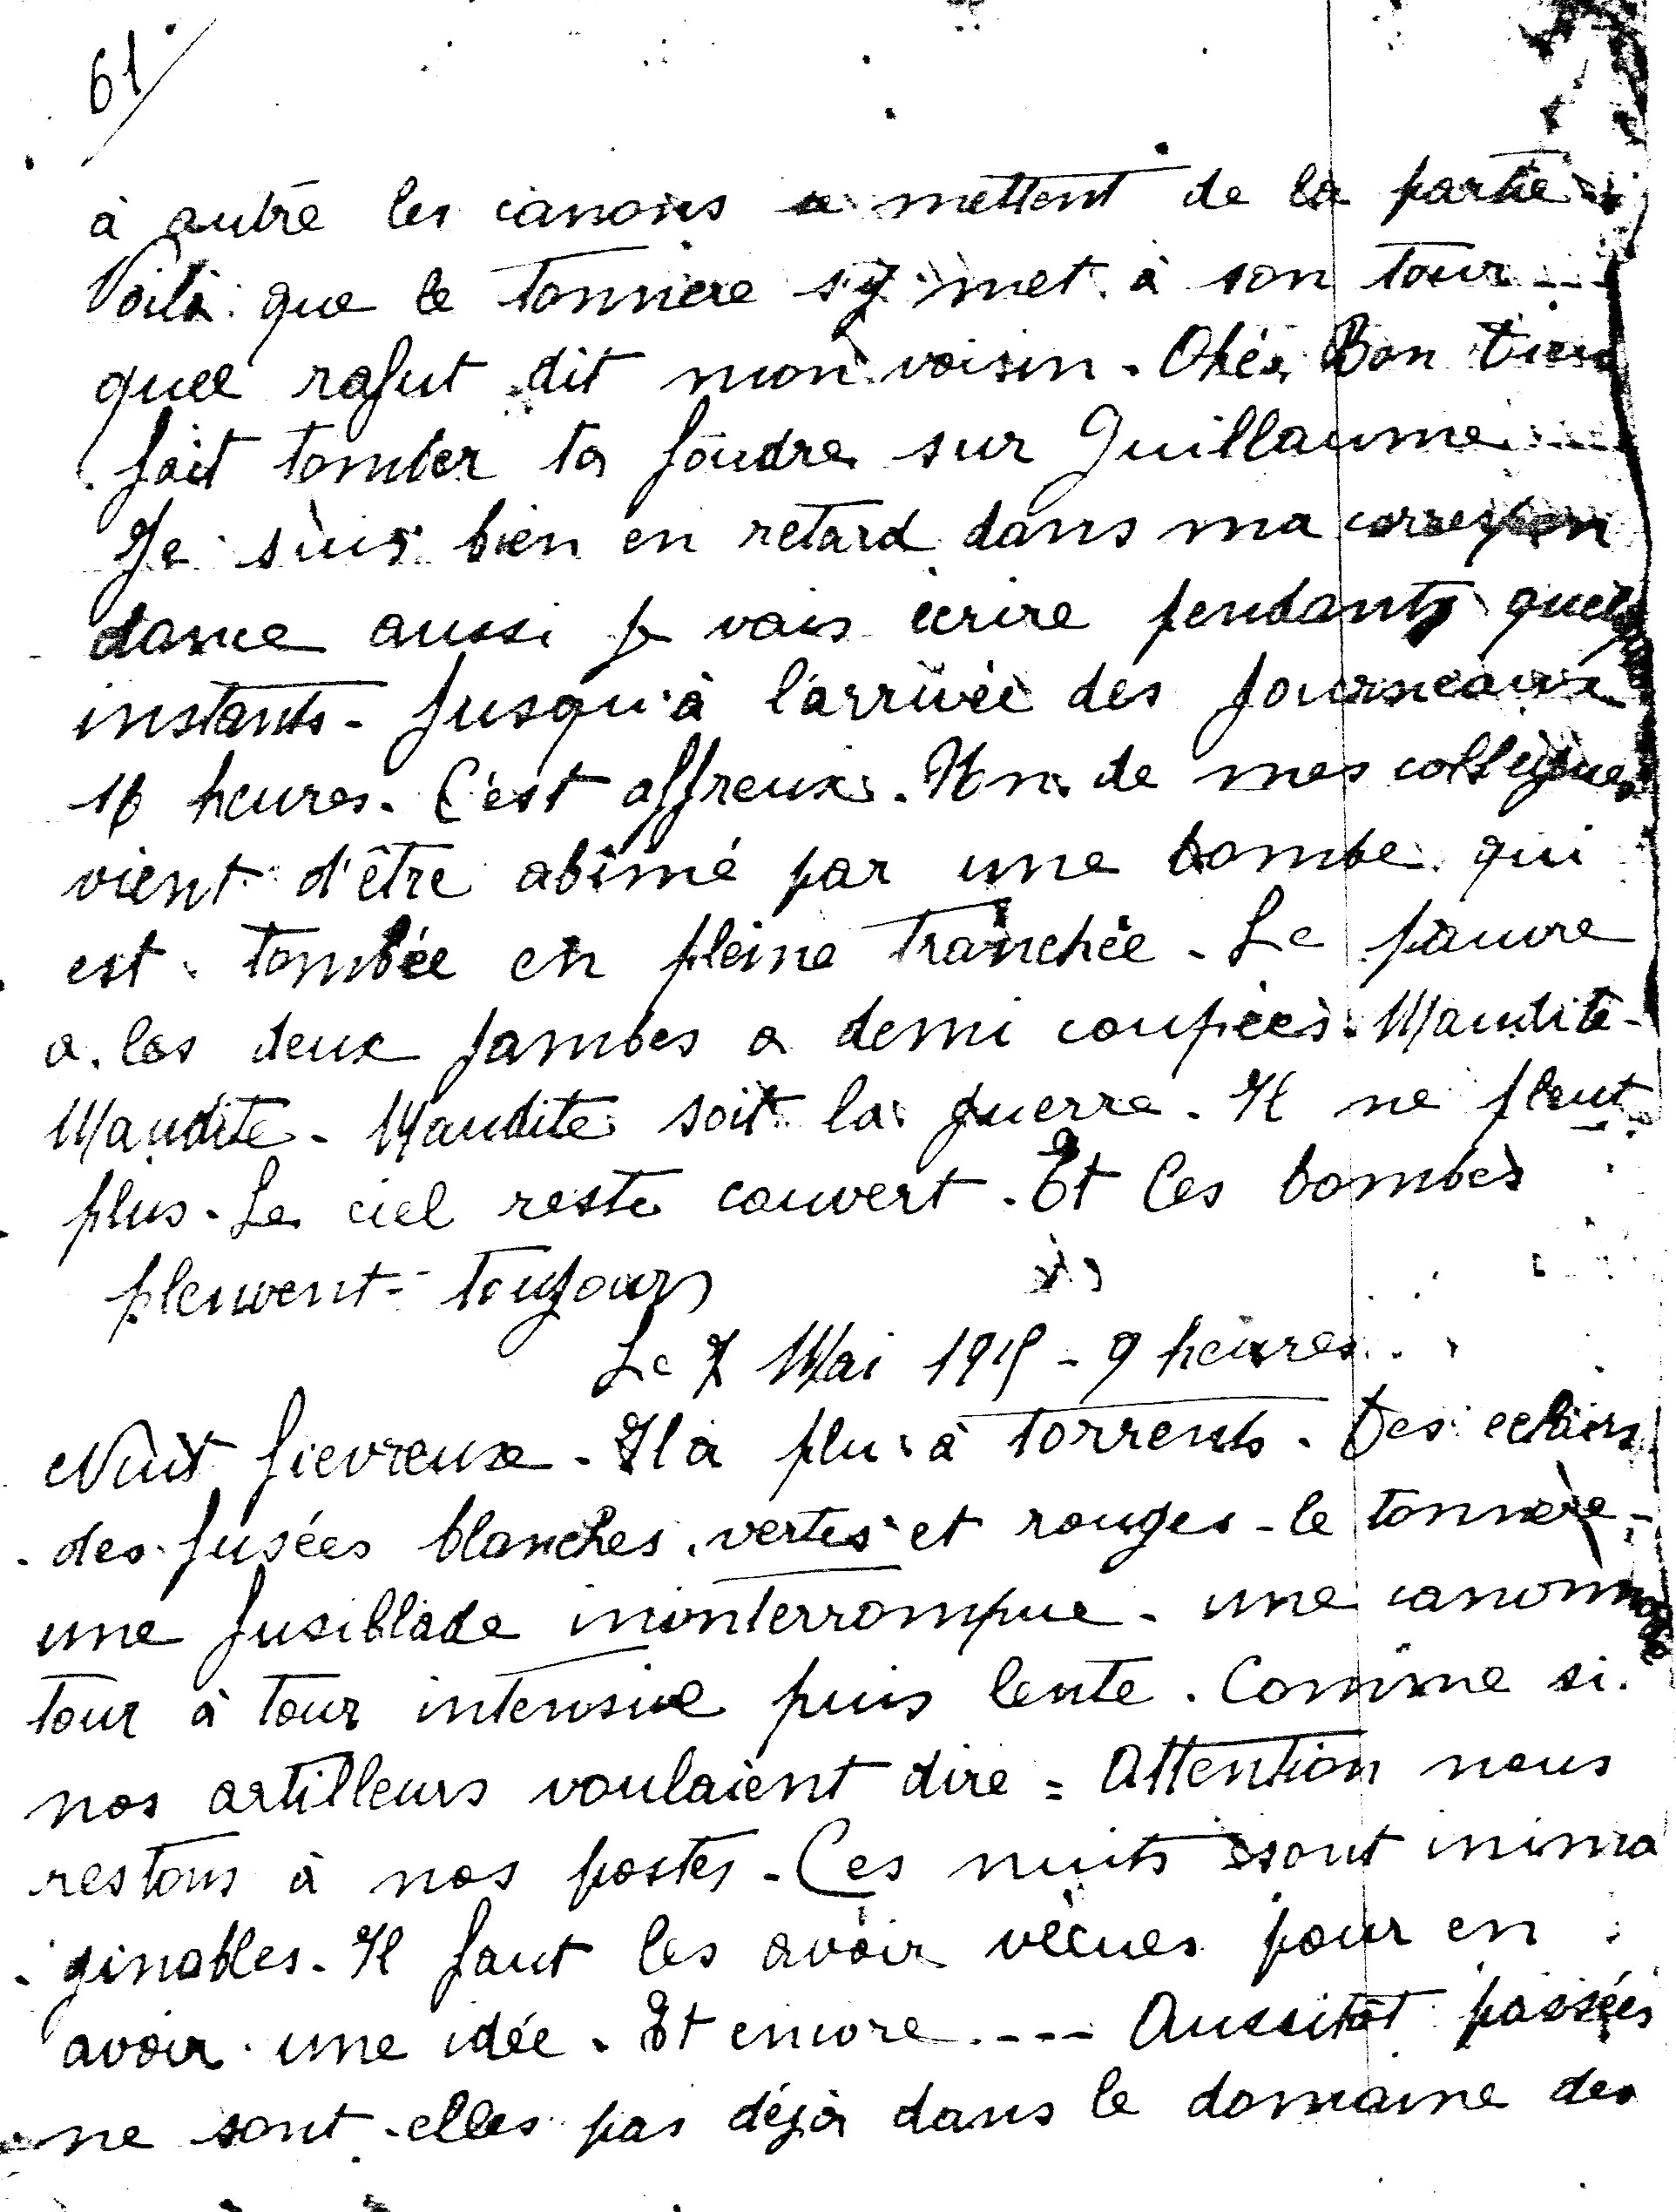 61
à autre les canons se mettent de la partie
Voilà que le tonnerre s'y met à son tour ---
quel rafut dit mon voisin. Ohé Bon Dieu
fait tomber ta foudre sur Guillaume ---
Je suis bien en retard dans ma correspon
dance aussi je vais écrire pendant quelq
instants - jusqu'à l'arrivée des journeaux
16 heures. C'est affreux. Un de mes collègues
vient d'être abîmé par une bombe qui
est tombée en pleine tranchée - Le pauvre
a les deux jambes a demi coupées. Maudite -
Maudite - Maudite soit la guerre. Il ne pleut
plus - Le ciel reste couvert. Et les bombes
pleuvent toujours
Le 7 Mai 1915 - 9 heures
Nuit fievreuse - Il a plu à torrents. Des eclairs
des fusées blanches, vertes et rouges - le tonnère -
une fusillade ininterrompue - une canonnade
tour à tour intensive puis lente. Comme si
nos artilleurs voulaient dire = Attention nous
restons à nos postes - Ces nuits sont inima
ginables. Il faut les avoir vécues pour en
avoir une idée. Et encore ---- Aussitôt passées
ne sont-elles pas déjà dans le domaine des